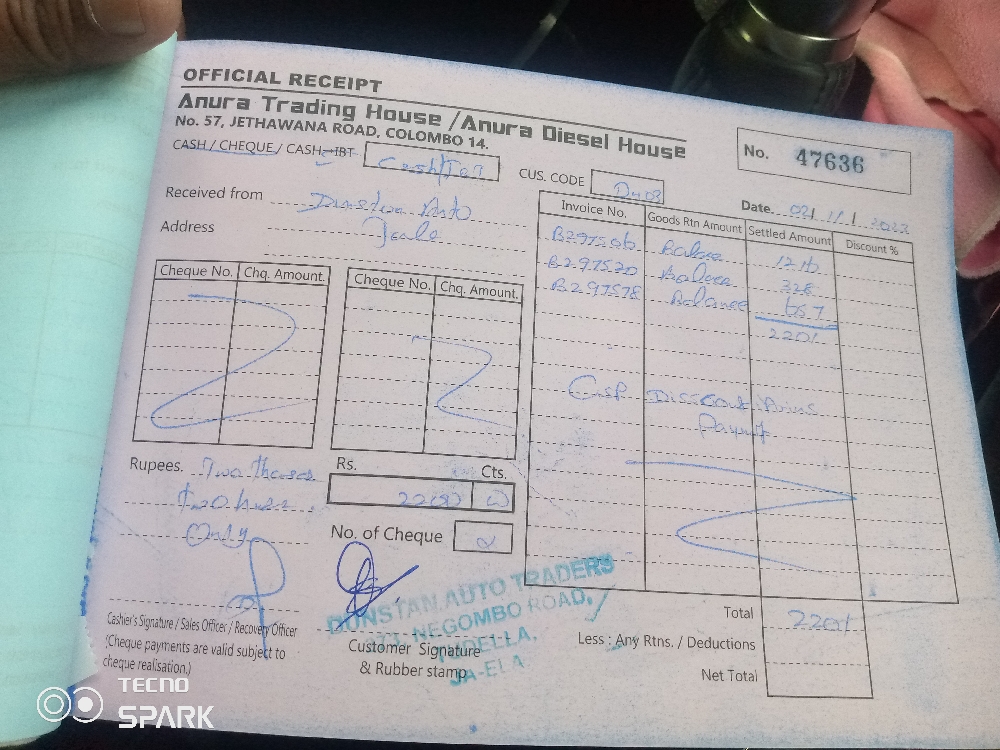 OFFICIAL RECEIPT
Anura Trading House / Anura Diesel House
No. 57, JETHAWANA ROAD, COLOMBO 14.
No. 47636
CASH / CHEQUE / CASH-IBT
CUS. CODE
Date 02/11/2023
Received from Auto
Address
Invoice No. Goods Rtn Amount Settled Amount Discount %
B297506 Balance 1216
B297520 Balance 328
B297578 Balance 657
2201
Cheque No. Chq. Amount.
Cheque No. Chq. Amount.
Cash Discount
Rupees. Two
Only
Rs. Cts.
No. of Cheque
Cashier's Signature / Sales Officer / Recovery Officer
(Cheque payments are valid subject to
cheque realisation.)
Customer Signature
& Rubber stamp
DUNSTAN AUTO TRADERS
NEGOMBO ROAD,
TUDELLA,
JA-ELA
Total 2201
Less : Any Rtns. / Deductions
Net Total
TECNO
SPARK